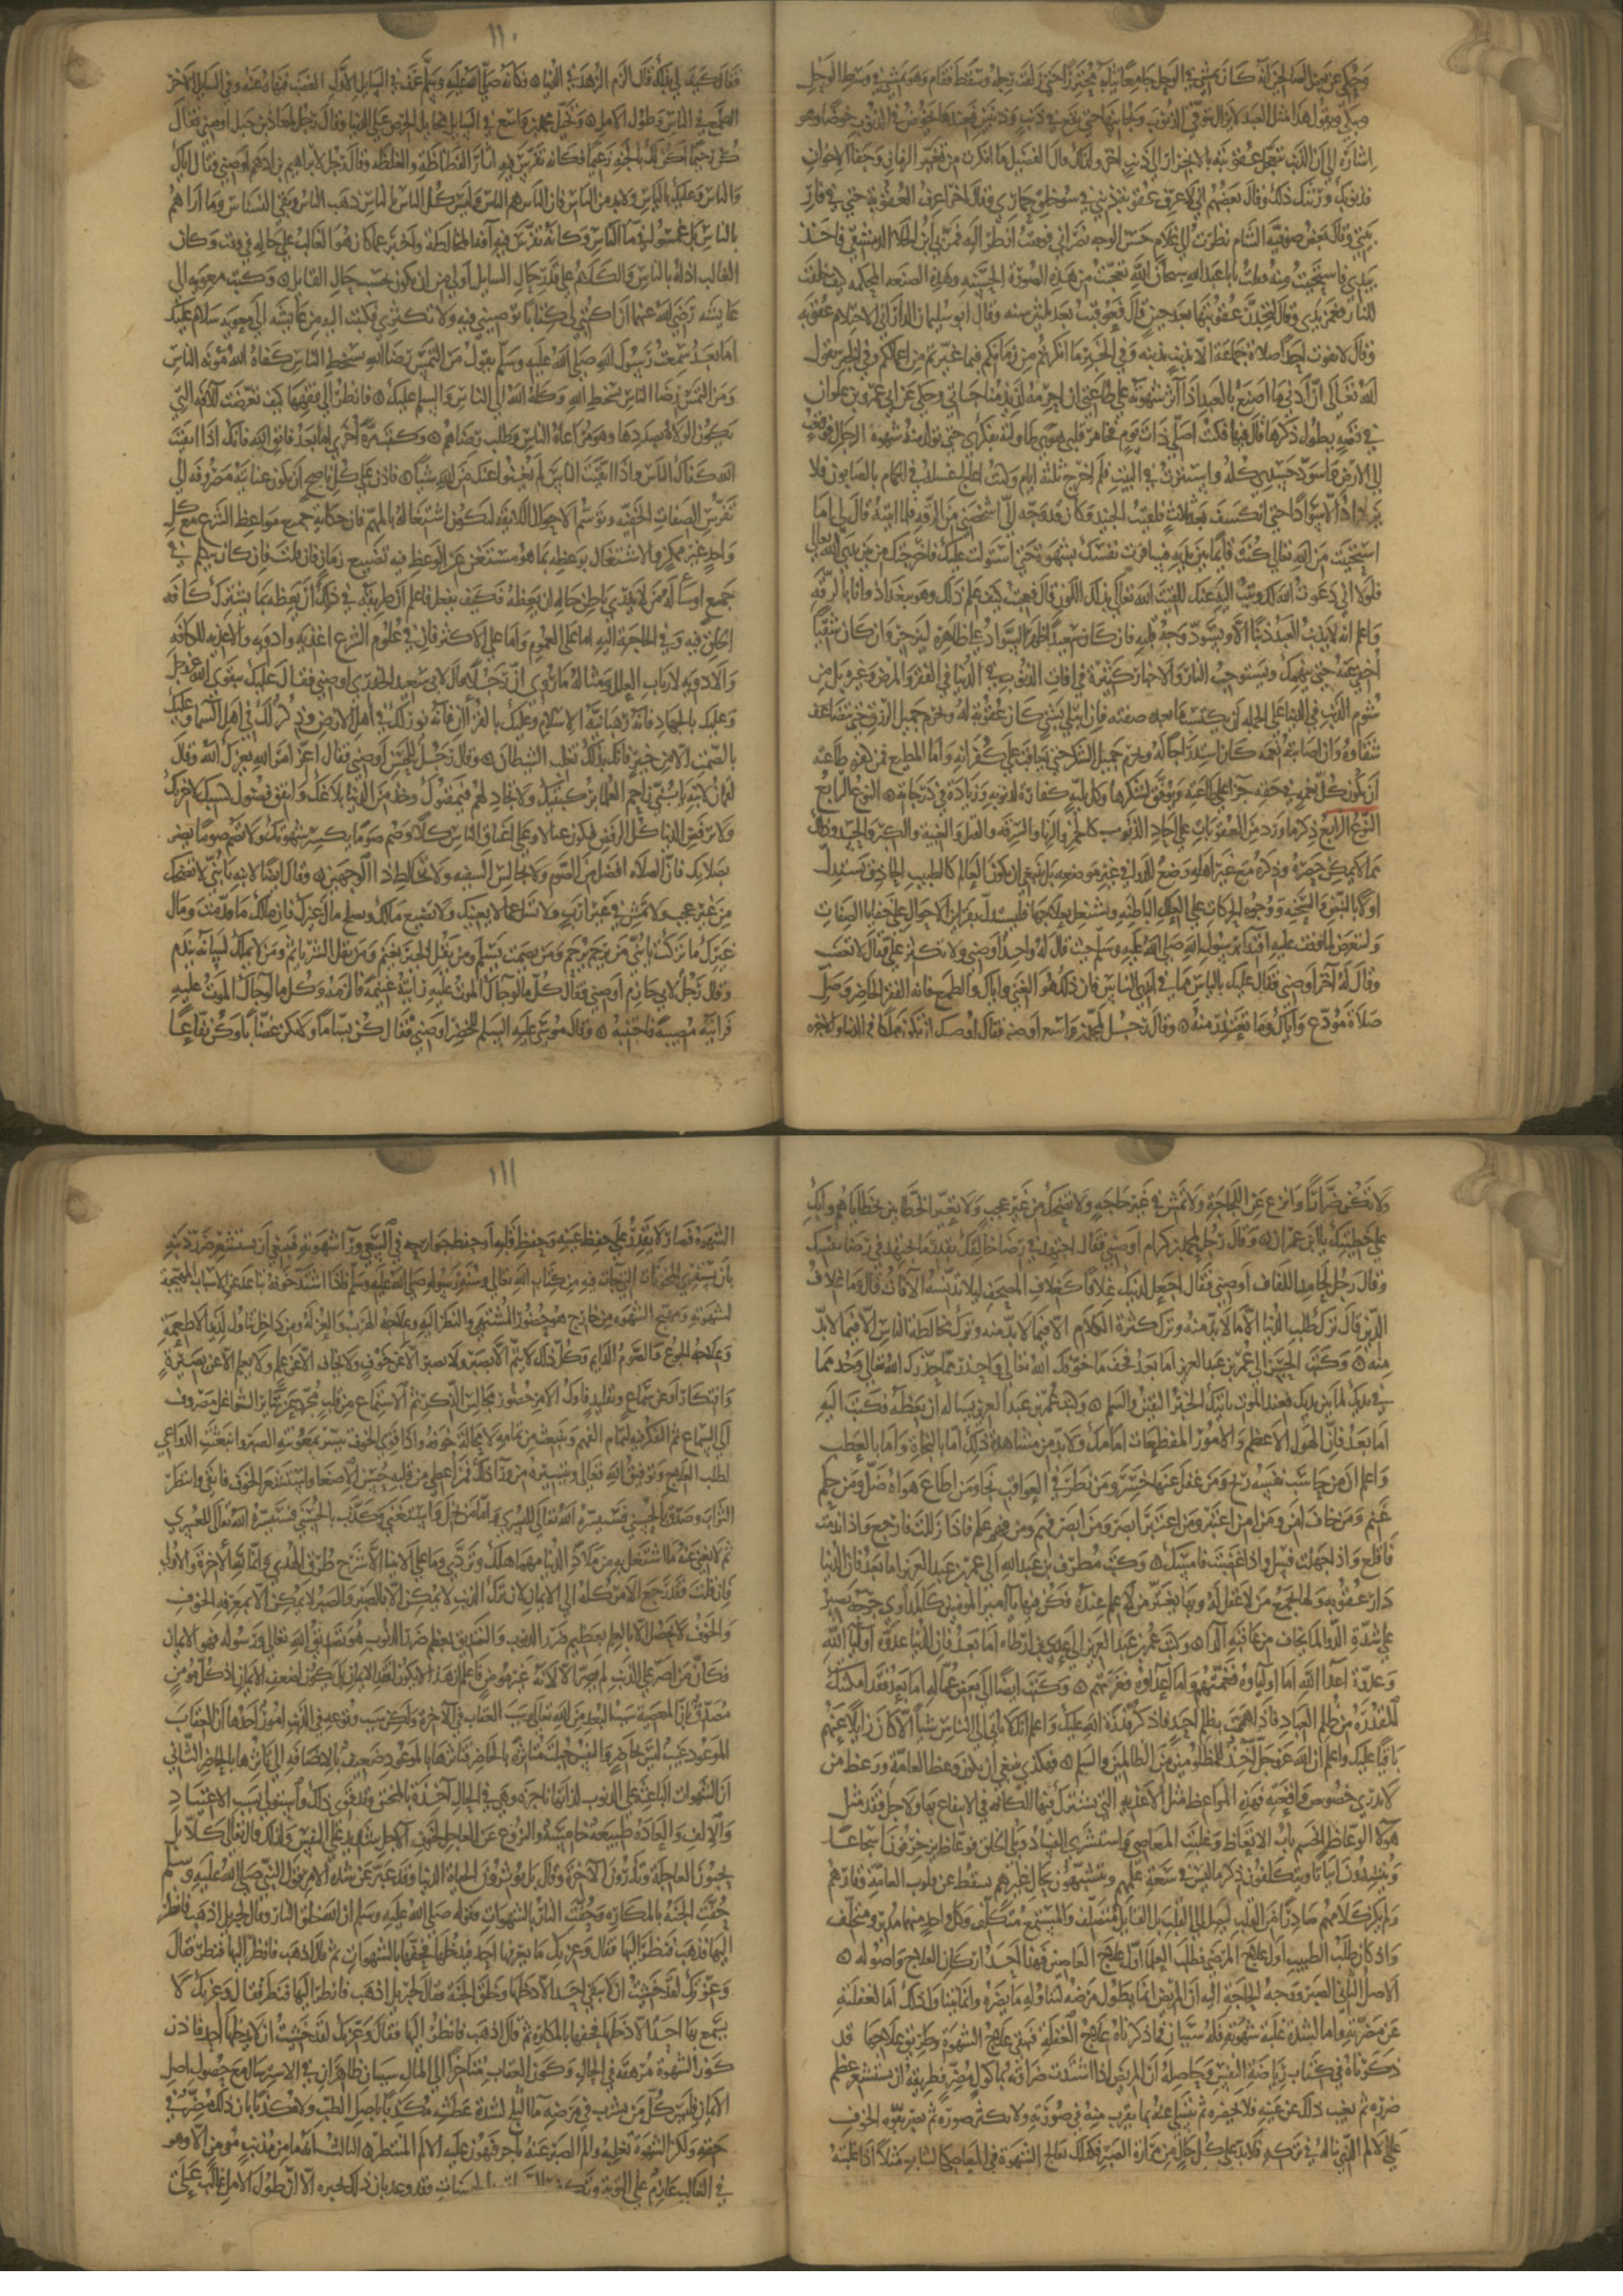 وحكي عن بعض الصالحين انه كان يمشي في الوحل جامعا ثيابه محترزا حتى زلقت رجله وسقط فقام وهو يمشي في وسط الوحل
ويبكي ويقول هذا مثل العبد لا يزال يتوقى الذنوب ويجانبها حتى يقع في ذنب وذنبين فعندها يخوض في الذنوب خوضا وهو
اشارة الى ان الذنب تتعجل عقوبته بالانجرار الى ذنب اخر ولذلك قال الفضيل ما انكرت من تغير الزمان وجفا الاخوان
فذنوبك ورثتك ذلك وقال بعضهم اني لاعرف عقوبة ذنبي في سو خلق حماري وقال اخر اعرف العقوبة حتى في فار
بيتي وقال بعض صوفية الشام نظرت الى غلام حسن الوجه نصراني فوقفت انظر اليه فمر بي ابن الجلا الدمشقي فاخذ
بيدي فاستحييت منه فقلت يابا عبد الله سبحان الله تعجبت من هذه الصورة الحسنة وهذه الصنعه المحكمه كيف خلقت
للنار فغمز يدي وقال لتجدن عقوبتها بعد حين قال فعوقبت بعد ثلثين سنه وقال ابو سليمان الداراني الاحتلام عقوبه
وقال لا تفوت احدا صلاة جماعة الا بذنب يذنبه وفي الخبر ما انكرتم من زمانكم فبما غيرتم من اعمالكم وفي الخبر يقول
الله تعالى ان ادنى ما اصنع بالعبد اذا آثر شهوته على طاعتي ان احرمه لذيذ مناجاتي وحكي عن ابي عمرو بن علوان
في قصه يطول ذكرها قال فيها فكنت اصلي ذات يوم فخامر قلبي هوى طاولته بفكري حتى تولد منه شهوة الرجال فوقعت
الى الارض فاسود جسدي كله واستترت في البيت فلم اخرج ثلثة ايام وكنت اعالج غسله في الحمام بالصابون فلا
يزداد الا سوادا حتى انكشف بعد ثلاث فلقيت الجنيد وكان قد وجه الي اشخصني من الرقه فلما اتيته قال لي اما
استحييت من الله تعالى كنت قائما بين يديه فسامرت نفسك بشهوة حتى استولت عليك فاخرجتك من بين يدي الله تعالى
فلولا اني دعوت الله لك وتبت اليه عنك للقيت الله تعالى بذلك اللون قال فعجبت كيف علم ذلك وهو ببغداد وانا بالرقه
واعلم انه لا يذنب العبد ذنبا الا ويسود وجه قلبه فان كان سعيدا ظهر السواد على ظاهره لينزجر وان كان شقيا
اخفي عنه حتى ينهمك ويستوجب النار والاخبار كثيرة في افات الذنوب في الدنيا في الفقر والمرض وغيره بل من
شوم الذنب في الدنيا على الجمله ان يكسب ما بعده صفته فان ابتلي بشي كان عقوبة له ويحرم جميل الرزق حتى يتضاعف
شقاوه وان اصابته نعمه كان استدراجا له ويحرم جميل الشكر حتى يعاقب على كفرانه واما المطيع فمن بركة طاعته
ان تكون كل نعمة في حقه جزا على طاعته ويوفق لشكرها وكل بلية كفارة لذنوبه وزيادة في درجاته النوع الرابع
النوع الرابع ذكر ما ورد من العقوبات على احاد الذنوب كالخمر والزنا والسرقه والقتل والغيبة والكبر والحسد وذلك
مما لا يمكن حصره وذكره مع غير اهله وضع الدوا في غير موضعه بل ينبغي ان يكون العالم كالطبيب الحاذق فيستدل
اولا بالنبض والسحنه ووجوه الحركات على العلل الباطنه ويشتغل بعلاجها فليستدل بقراين الاحوال على خفايا الصفات
وليتعرض لما وقف عليه اقتدا برسول الله صلى الله عليه وسلم حيث قال له واحد اوصني ولا تكثر علي قال لا تغضب
وقال له آخر اوصني فقال عليك بالياس مما في ايدي الناس فان ذلك هو الغنى واياك والطمع فانه الفقر الحاضر وصل
صلاة مودع واياك وما تعتذر منه وقال رجل لمحمد بن واسع اوصني فقال اوصيك ان تكون ملكا في الدنيا والاخره
١١٠
فقال كيف لي بذلك قال الزم الزهد في الدنيا فكانه صلى الله عليه وسلم عرف في السايل الاول الغضب فنهاه عنه وفي السايل الاخر
الطمع في الناس وطول الامل وتخيل محمد بن واسع في السايل مخايل الحرص على الدنيا وقال رجل لمعاذ بن جبل اوصني فقال
كن رحيما اكن لك بالجنة زعيما فكانه تفرس فيه اثار الفظاظة والغلظه وقال رجل لابراهيم بن ادهم اوصني فقال اياك
والناس وعليك بالناس ولا بد من الناس فان الناس هم الناس وليس كل الناس بالناس ذهب الناس وبقي النسناس وما اراهم
بالناس بل غمسوا في ما الناس وكانه تفرس فيه آفة المخالطة واخبر عما كان هو الغالب على حاله في وقته وكان
الغالب اذاه بالناس والكلام على قدر حال السايل اولى من ان يكون بحسب حال القايل وكتب معويه الى
عايشه رضي الله عنهما ان اكتبي لي كتابا توصيني فيه ولا تكثري فكتبت اليه من عايشه الى معويه سلام عليك
اما بعد سمعت رسول الله صلى الله عليه وسلم يقول من التمس رضا الله بسخط الناس كفاه الله مؤنه الناس
ومن التمس رضا الناس بسخط الله وكله الله الى الناس والسلم عليك فانظر الى فقهها كيف تعرضت للآفة التي
تكون الولاة بصددها وهو مراعاة الناس وطلب رضاهم وكتبت مرة اخرى اما بعد فاتق الله فانك اذا اتقيت
الله كفاك الناس واذا اتقيت الناس لم يغنوا عنك من الله شيا فاذن على كل ناصح ان تكون عنايته مصروفه الى
تفرس الصفات الخفيه وتوسم الاحوال اللايقه ليكون اشتغاله بالمهم فان حكاية جميع مواعظ الشرع مع كل
واحد غير ممكن والاشتغال بوعظه بما هو مستغن عن الوعظ فيه تضييع زمان فان قلت فان كان يتكلم في
جمع او ساله من لا يدري باطن حاله ان يعظه فكيف يفعل فاعلم ان طريقه في ذلك ان يعظه بما يشترك كافة
الخلق فيه وفي الحاجة اليه اما على العموم واما على الاكثر فان في علوم الشرع اغذيه وادويه والاغذيه للكافه
والادويه لارباب العلل ومثاله ما روي ان رجلا قال لابي سعيد الخدري اوصني فقال عليك بتقوى الله عز وجل
وعليك بالجهاد فانه رهبانية الاسلام وعليك بالقرآن فانه نور لك في اهل الارض وذكر لك في اهل السما وعليك
بالصمت الا من خير فانك بذلك تغلب الشيطان وقال رجل للحسن اوصني فقال اعز امر الله يعزك الله وقال
لقمان لابنه يا بني زاحم العلما بركبتيك ولا تجادلهم فيمقتوك وخذ من الدنيا بلاغك وانفق فضول كسبك لاخرتك
ولا ترفض الدنيا كل الرفض فتكون عيالا وعلى اعناق الناس كلا وصم صوما يكسر شهوتك ولا تصم صوما يضر
بصلاتك فان الصلاة افضل من الصوم ولا تجالس السفيه ولا تخالط ذا الوجهين وقال ايضا لابنه يا بني لا تضحك
من غير عجب ولا تمش في غير ارب ولا تسل عما لا يعنيك ولا تضيع مالك وتصلح مال غيرك فان مالك ما قدمت ومال
غيرك ما تركت يا بني من يرحم يرحم ومن يصمت يسلم ومن يقل الخير يغنم ومن يقل الشر ياثم ومن لا يملك لسانه يندم
وقال رجل لابي حازم اوصني فقال كل ما لو جاك الموت عليه فرايته غنيمة فالزمه وكل ما لو جاك الموت عليه
فرايته مصيبة فاجتنبه وقال موسى عليه السلم للخضر اوصني فقال كن بساما ولا تكن غضابا وكن نفاعا
ولا تكن ضرارا وانزع عن اللجاجة ولا تمش في غير حاجه ولا تضحك من غير عجب ولا تعير الخطائين بخطاياهم وابك
على خطيئتك يا ابن عمران وقال رجل لمحمد بن كرام اوصني فقال اجتهد في رضا خالقك بقدر ما تجتهد في رضا نفسك
وقال رجل لحامد اللفاف اوصني فقال اجعل لدينك غلافا كغلاف المصحف ليلا تدنسه الآفات قال وما غلاف
الدين قال ترك طلب الدنيا الا ما لا بد منه وترك كثرة الكلام الا فيما لا بد منه وترك مخالطة الناس الا فيما لا بد
منه وكتب الحسن الى عمر بن عبد العزيز اما بعد فخف مما خوفك الله تعالى واحذر مما حذرك الله تعالى وخذ مما
في يديك لما بين يديك فعند الموت ياتيك الخبر اليقين والسلم وكتب عمر بن عبد العزيز يساله ان يعظه فكتب اليه
اما بعد فان الهول الاعظم والامور المفظعات امامك ولا بد من مشاهدة ذلك اما بالنجاة واما بالعطب
واعلم ان من حاسب نفسه ربح ومن غفل عنها خسر ومن نظر في العواقب نجا ومن اطاع هواه ضل ومن حلم
غنم ومن خاف امن ومن امن اعتبر ومن اعتبر ابصر ومن ابصر فهم ومن فهم علم فاذا زللت فارجع واذا ندمت
فاقلع واذا جهلت فسل واذا غضبت فامسك وكتب مطرف بن عبد الله الى عمر بن عبد العزيز اما بعد فان الدنيا
دار عقوبة ولها يجمع من لا عقل له وبها يغتر من لا علم عنده فكن فيها يا امير المومنين كالمداوي جرحه يصبر
على شدة الدوا لما يخاف من عاقبة الدا وكتب عمر بن عبد العزيز الى عدي بن ارطاه اما بعد فان الدنيا عدوة اوليا الله
وعدوة اعدا الله اما اولياوه فغمتهم واما اعداوه فغرتهم وكتب ايضا الى بعض عماله اما بعد فقد امكنتك
القدره من ظلم العباد فاذا هممت بظلم احد فاذكر قدرة الله عليك واعلم انك لا تاتي الى الناس شيا الا كان زايلا عنهم
باقيا عليك واعلم ان الله عز وجل آخذ للمظلومين من الظالمين والسلم فهكذى ينبغي ان يكون وعظ العامة ووعظ من
لا يدرى خصوص واقعته فهذه المواعظ مثل الاغذيه التي يشترك فيها الكافه في الانتفاع بها ولاجل فقد مثل
هولا الوعاظ انحسم باب الاتعاظ وغلبت المعاصي واستشرى الفساد وبلي الخلق بوعاظ يزخرفون اسجاعا
وينشدون ابياتا ويتكلفون ذكر ما ليس في سعة علمهم ويتشبهون بحال غيرهم فسقط عن قلوب العامة وقارهم
ولم يكن كلامهم صادرا من القلب ليصل الى القلب بل القايل متصلف والمستمع متكلف وكل واحد منهما مدبر ومتخلف
واذ كان طلب الطبيب اول علاج المرضى فطلب العلما اول علاج العاصين فهذا احد اركان العلاج واصوله
الاصل الثاني الصبر ووجه الحاجة اليه ان المريض انما يطول مرضه لتناوله ما يضره وانما يتناول ذلك اما لغفلته
عن مضرته واما لشدة غلبة شهوته فله سببان فما ذكرناه علاج الغفلة فبقي علاج الشهوة وطريق علاجها قد
ذكرناه في كتاب رياضة النفس وحاصله ان المريض اذا اشتدت ضراوته لماكول مضر فطريقه ان يستشعر عظم
ضرره ثم يغيب ذلك عن عينه فلا يحضره ثم يتسلى عنه بما يقرب منه في صورته ولا يكثر ضرره ثم يصبر بقوة الخوف
على الالم الذي يناله في تركه فلا بد على كل حال من مرارة الصبر فكذلك تعالج الشهوة في المعاصي كالشاب مثلا اذا غلبته
١١١
الشهوة فصار لا يقدر على حفظ عينه وحفظ قلبه او حفظ جوارحه في السعي ورا شهوته فينبغي ان يستشعر ضرر ذنبه
بان يستقري المخوفات التي جات فيه من كتاب الله تعالى وسنة رسوله صلى الله عليه وسلم فاذا اشتد خوفه تباعد عن الاسباب المهيجة
لشهوته ومهيج الشهوه من خارج هو حضور المشتهى والنظر اليه وعلاجه الهرب والعزله ومن داخل تناول لذايذ الاطعمة
وعلاجه الجوع والصوم الدايم وكل ذلك لا يتم الا بصبر ولا يصبر الا عن خوف ولا يخاف الا عن علم ولا يعلم الا عن بصيرة
وافتكار او عن سماع وتقليد فاول الامر حضور مجالس الذكر ثم الاستماع من قلب مجرد عن ساير الشواغل مصروف
الى السماع ثم التفكر فيه لتمام الفهم وينبعث من تمامه لا محالة خوفه واذا قوي الخوف تيسر بمعونته الصبر وانبعثت الدواعي
لطلب العلاج وتوفيق الله تعالى وتيسيره من ورا ذلك فمن اعطى من قلبه حسن الاصغا واستشعر الخوف فاتقى وانتظر
الثواب وصدق بالحسنى فسييسره الله تعالى لليسرى واما من بخل واستغنى وكذب بالحسنى فسييسره الله تعالى للعسرى
ثم لا يغني عنه ما اشتغل به من ملاذ الدنيا مهما هلك وتردى وما على الانبيا الا شرح طرق الهدى وانما لله الآخرة والاولى
فان قلت فقد رجع الامر كله الى الايمان لان ترك الذنب لا يمكن الا بالصبر والصبر لا يمكن الا بمعرفة الخوف
والخوف لا يحصل الا بالعلم بعظيم ضرر الذنوب والتصديق بعظم ضرر الذنوب هو تصديق الله تعالى ورسوله فهو الايمان
فكان من اصر على الذنب لم يصر الا لانه غير مومن فاعلم ان هذا لا يكون لفقد الايمان بل يكون لضعف الايمان اذ كل مومن
مصدق بان المعصية سبب البعد من الله تعالى وسبب العقاب في الآخرة ولكن سبب وقوعه في الذنب امور احدها ان العقاب
الموعود غيب ليس بحاضر والنفس جبلت متاثرة بالحاضر فتاثرها بالموعود ضعيف بالاضافه الى تاثرها بالحاضر الثاني
ان الشهوات الباعثة على الذنوب لذاتها ناجزه وهي في الحال آخذة بالمخنق وقد قوي ذلك واستولى بسبب الاعتياد
والالف والعادة طبيعة خامسة والنزوع عن العاجل لخوف الآجل شديد على النفس ولذلك قال تعالى كلا بل
تحبون العاجلة وتذرون الآخرة وقال بل توثرون الحياة الدنيا وقد عبر عن شدة الامر بقول النبي صلى الله عليه وسلم
حفت الجنه بالمكاره وحفت النار بالشهوات وقوله صلى الله عليه وسلم ان الله خلق النار وقال لجبريل اذهب فانظر
اليها فذهب فنظر اليها فقال وعزتك ما يسمع بها احد فيدخلها فحفها بالشهوات ثم قال اذهب فانظر اليها فنظر فقال
وعزتك لقد خشيت ان لا يبقى احد الا دخلها وخلق الجنة فقال لجبريل اذهب فانظر اليها فنظر فقال وعزتك لا
يسمع بها احد الا دخلها فحفها بالمكاره ثم قال اذهب فانظر اليها فقال وعزتك لقد خشيت ان لا يدخلها احد فاذن
كون الشهوة مرهقة في الحال وكون العقاب متاخرا الى المال سببان ظاهران في الاسترسال مع حصول اصل
الايمان فليس كل من يشرب في مرضه ما الثلج لشدة عطشه مكذبا باصل الطب ولا مكذبا بان ذلك مضر في
حقه ولكن الشهوة تغلبه والم الصبر عنه ناجز فيهون عليه الالم المنتظر الثالث انه ما من مذنب مومن الا وهو
في الغالب عازم على التوبة وتكفير السيات بالحسنات وقد وعد بان ذلك يجبره الا ان طول الامل غالب على